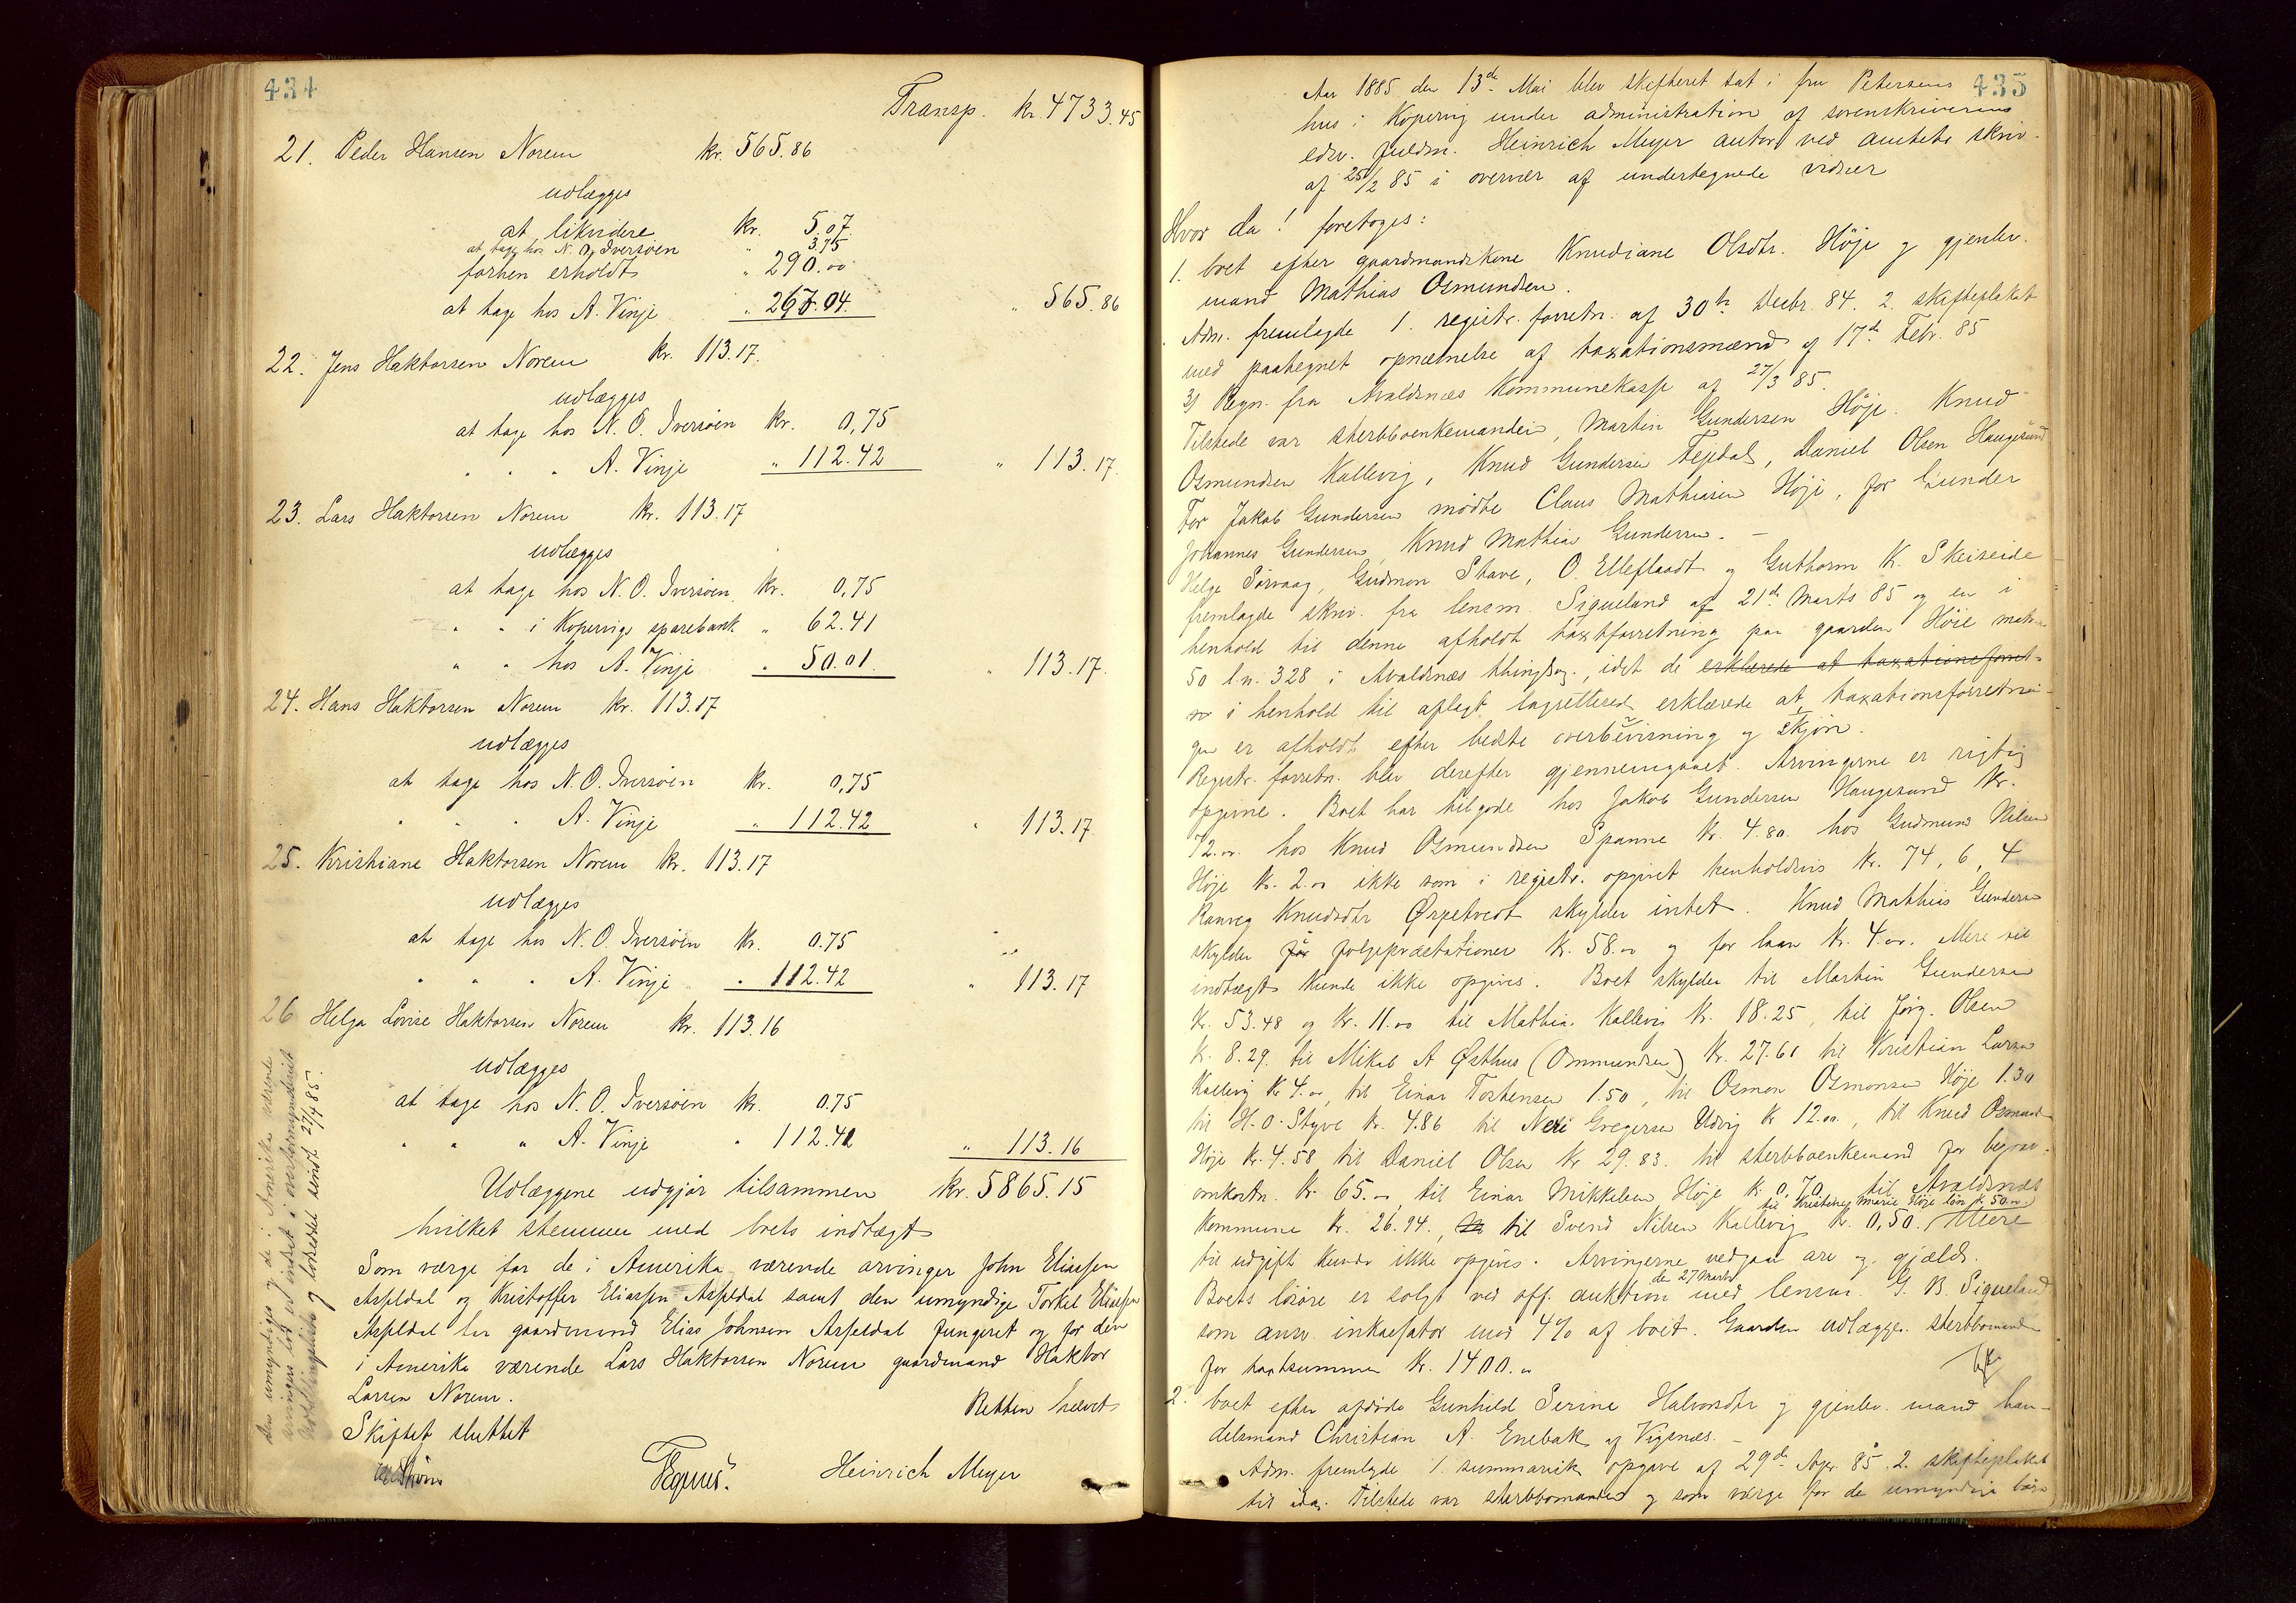 434
Transp. kr. 4733.45
21. Peder Hansen Norem kr. 565.86
udlægges
at likvidere kr. 5.07
at tage hos N. O. Iversøen " 3.75
forhen erholdt " 290.00
at tage hos A. Vinje " 267.04. " 565.86
22. Jens Haktorsen Norem kr. 113.17.
udlægges
at tage hos N. O. Iversøen kr. 0,75
" " " A. Vinje " 112.42 " 113.17.
23. Lars Haktorsen Norem kr. 113.17
udlægges
at tage hos N. O. Iversøen kr. 0,75
" " i Kopervigs sparebank " 62.41
" " hos A. Vinje " 50.01. " 113.17.
24. Hans Haktorsen Norem kr. 113.17
udlægges
at tage hos N. O. Iversøen kr. 0,75
" " " A. Vinje " 112.42 " 113.17.
25. Kristiane Haktorsen Norem kr. 113.17
udlægges
at tage hos N. O. Iversøen kr. 0.75
" " " A. Vinje " 112.42 " 113.17
26 Helga Lovise Haktorsen Norem kr. 113.16
udlægges
at tage hos N. O. Iversøen kr. 0.75
" " " A. Vinje " 112.41 " 113.16
Udlæggene udgjør tilsammen kr. 5865.15
hvilket stemmer med boets indtægt
Som værge for de i Amerika værende arvinger John Eliassen
Asseldal og Kristoffer Eliassen Asseldal samt den umyndige Torkel Eliassen
Asseldal har gaardmand Elias Johnsen Asseldal fungeret og for den
i Amerika værende Lars Haktorsen Norem gaardmand Haktor
Larsen Norem.
Retten hævet
Skiftet sluttet
Heinrich Meyer
Den umyndiges og de i Amerika værende
arvinges lod er indsat i overformynderiet
Udlodningsliste og lodseddel sendt 27/4 85.
435
Aar 1885 den 13de Mai blev skifteret sat i fru Petersens
hus i Kopervig under administration af sorenskriverens
edsv. fuldm. Heinrich Meyer autor. ved amtets skriv.
af 25/2 85 i overvær af undertegnede vidner
Hvor da! foretoges:
1. boet efter gaardmandskone Knudiane Olsdtr. Høje og gjenlev.
mand Mathias Osmundsen.
Adm. fremlagde 1. registr. forretn. af 30te Decbr. 84. 2. skifteplakat
med paategnet opnævnelse af taxationsmænd af 17de Febr. 85
3) Regn. fra Avaldsnes Kommunekasse af 27/3 85.
Tilstede var sterbboenkemanden, Martin Gundersen Høje. Knud
Osmundsen Kallevig, Knud Gundersen Fejdal, Daniel Olsen Haugesund
For Jakob Gundersen mødte Claus Mathiasen Høje, for Gunder
Johannes Gundersen, Knud Mathias Gundersen. –
Helge Sørvaag, Gudmon Stave, O. Elleflaadt og Guthorm K. Skeiseide
fremlagde skriv. fra lensm. Siqueland af 21de Marts 85 og en i
henhold til denne afholdt taxtforretning paa gaarden Høie matr.
50 l.n. 328 i Avaldsnæs thinglag., idet de erklærede at taxationsforret-
n i henhold til aflagt lagretteed erklærede at taxationsforretnin-
gen er afholdt efter bedste overbevisning og skjøn.
Registr. forretn. blev derefter gjennemgaaet. Arvingerne er rigtig
opgivne. Boet har tilgode hos Jakob Gundersen Haugesund kr.
72.00 hos Knud Osmundsen Spanne kr. 4.80. hos Gudmund Nilsen
Høje kr. 2.00 ikke som i registr. opgivet henholdsvis kr. 74, 6, 4
Ranveg Knudsdtr Ørpetvedt skylder intet. Knud Mathias Gundersen
skylder for følgepræstationer kr. 58.00 og for laan kr. 4.00. Mere til
indtægt kunde ikke opgives. Boet skylder til Martin Gundersen
kr. 53.48 og kr. 11.00 til Mathias Kallevig kr. 18.25, til Jørg. Olsen
kr. 8.29. til Mikal A Østhus (Ommundsen) kr. 27.61 til Kristian Larsen
Kallevig kr 4.00, til Einar Tostensen 1.50, til Osmon Osmonsen Høje 1.30
til H. O. Styve kr. 4.86 til Neri Gregersen Udvig kr 12.00, til Knud Osmunds.
Høje kr. 4.58 til Daniel Olsen kr 29.83. til sterbboenkemand for begrav.
omkostn. kr 65.–, til Einar Mikkelsen Høje kr 0,70, til Avaldsnæs
til Kristine Marie Høje løn kr. 50.00)
Kommune kr. 26.94., til Svend Nilsen Kallevig kr. 0,50. Mere
til udgift kunde ikke opgives. Arvingerne vedgaar arv og gjæld.
den 27 Marts
Boets løsøre er solgt ved off. auktion med lensm. G. B. Siqueland
som ansv. inkassator mod 4% af boet. Gaarden udlægges sterbbomanden
for taxtsummen kr. 1400.00
2. boet efter afdøde Gunhild Serine Halvorsdtr og gjenlev. mand han-
delsmand Christian A. Enebak af Vigsnæs. –
Adm. fremlagde 1. summarisk opgave af 29de Apr. 85. 2. skifteplakat
til idag. Tilstede var sterbbomanden og som værge for de umyndige børn